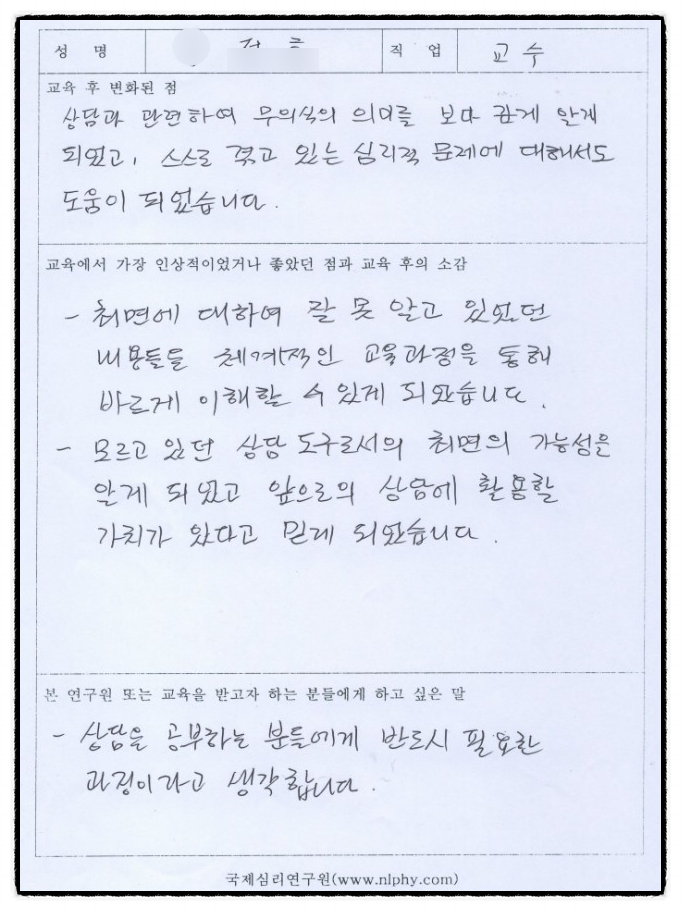 성 명 직 업 교수
교육 후 변화된 점
상담과 관련하여 무의식의 의미를 보다 깊게 알게
되었고, 스스로 겪고 있는 심리적 문제에 대해서도
도움이 되었습니다.
교육에서 가장 인상적이었거나 좋았던 점과 교육 후의 소감
- 최면에 대하여 잘 못 알고 있었던
내용들을 체계적인 교육과정을 통해
바르게 이해할 수 있게 되었습니다.
- 모르고 있던 상담 도구로서의 최면의 가능성을
알게 되었고 앞으로의 상담에 활용할
가치가 있다고 믿게 되었습니다.
본 연구원 또는 교육을 받고자 하는 분들에게 하고 싶은 말
- 상담을 공부하는 분들에게 반드시 필요한
과정이라고 생각합니다.
국제심리연구원(www.nlphy.com)